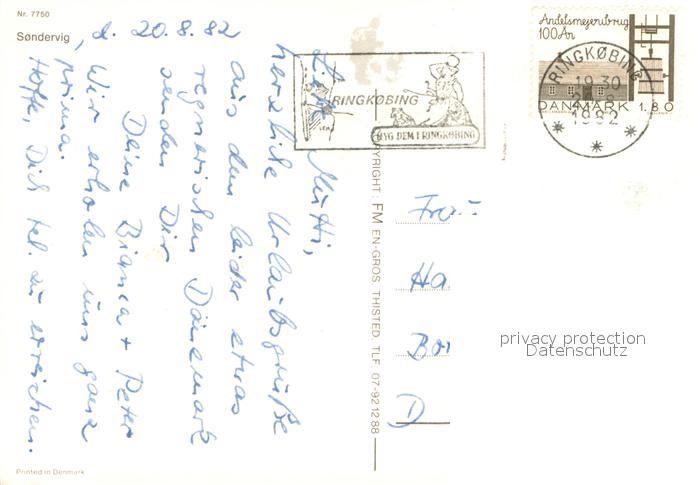 Nr. 7750
Søndervig
, d. 20.8.82
Liebe Mutti,
herzliche Urlaubsgrüße
aus dem leider etwas
regnerischen Dänemark
senden Dir
Deine Bianca + Peter
Wir erholen uns ganz
prima.
Hoffe, Dich tel. zu erreichen.
Printed in Denmark
COPYRIGHT: FM EN-GROS THISTED. TLF 07-92 12 88
RINGKØBING
BYG DEM I RINGKØBING
Andelsmejeribrug
100 År
DANMARK 1.80
RINGKØBING
19.30
1982
Frau
Ha
Bor
D
privacy protection
Datenschutz